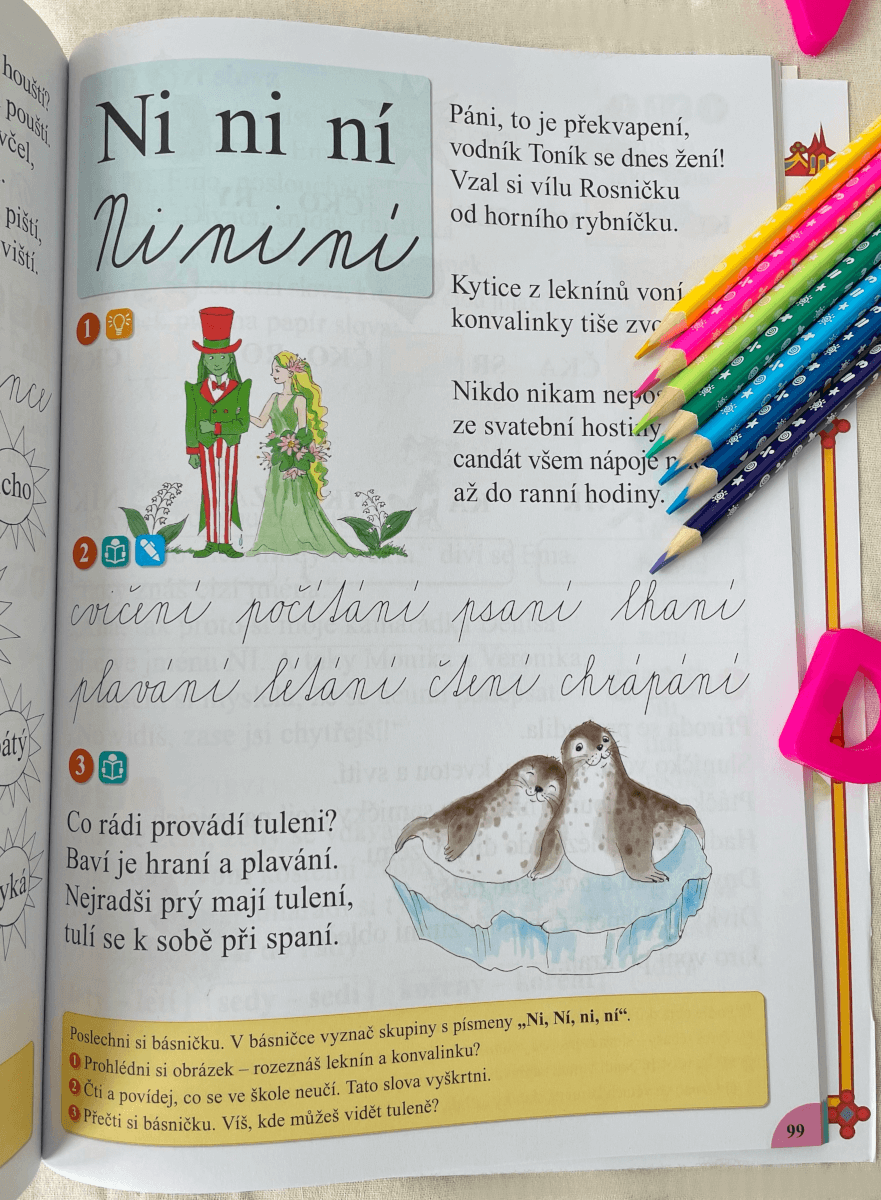 houští?
pouští.
včel,
piští,
viští.
nce
cho
pátý
yká
Ni ni ní
Ni ni ní
Páni, to je překvapení,
vodník Toník se dnes žení!
Vzal si vílu Rosničku
od horního rybníčku.
Kytice z leknínů voní
konvalinky tiše
Nikdo nikam
ze svatební hostiny
candát všem nápoje
až do ranní hodiny.
1
2
cvičení počítání psaní lhaní
plavání létání čtení chrápání
3
Co rádi provádí tuleni?
Baví je hraní a plavání.
Nejradši prý mají tulení,
tulí se k sobě při spaní.
Poslechni si básničku. V básničce vyznač skupiny s písmeny „Ni, Ní, ni, ní“.
1 Prohlédni si obrázek – rozeznáš leknín a konvalinku?
2 Čti a povídej, co se ve škole neučí. Tato slova vyškrtni.
3 Přečti si básničku. Víš, kde můžeš vidět tuleně?
99